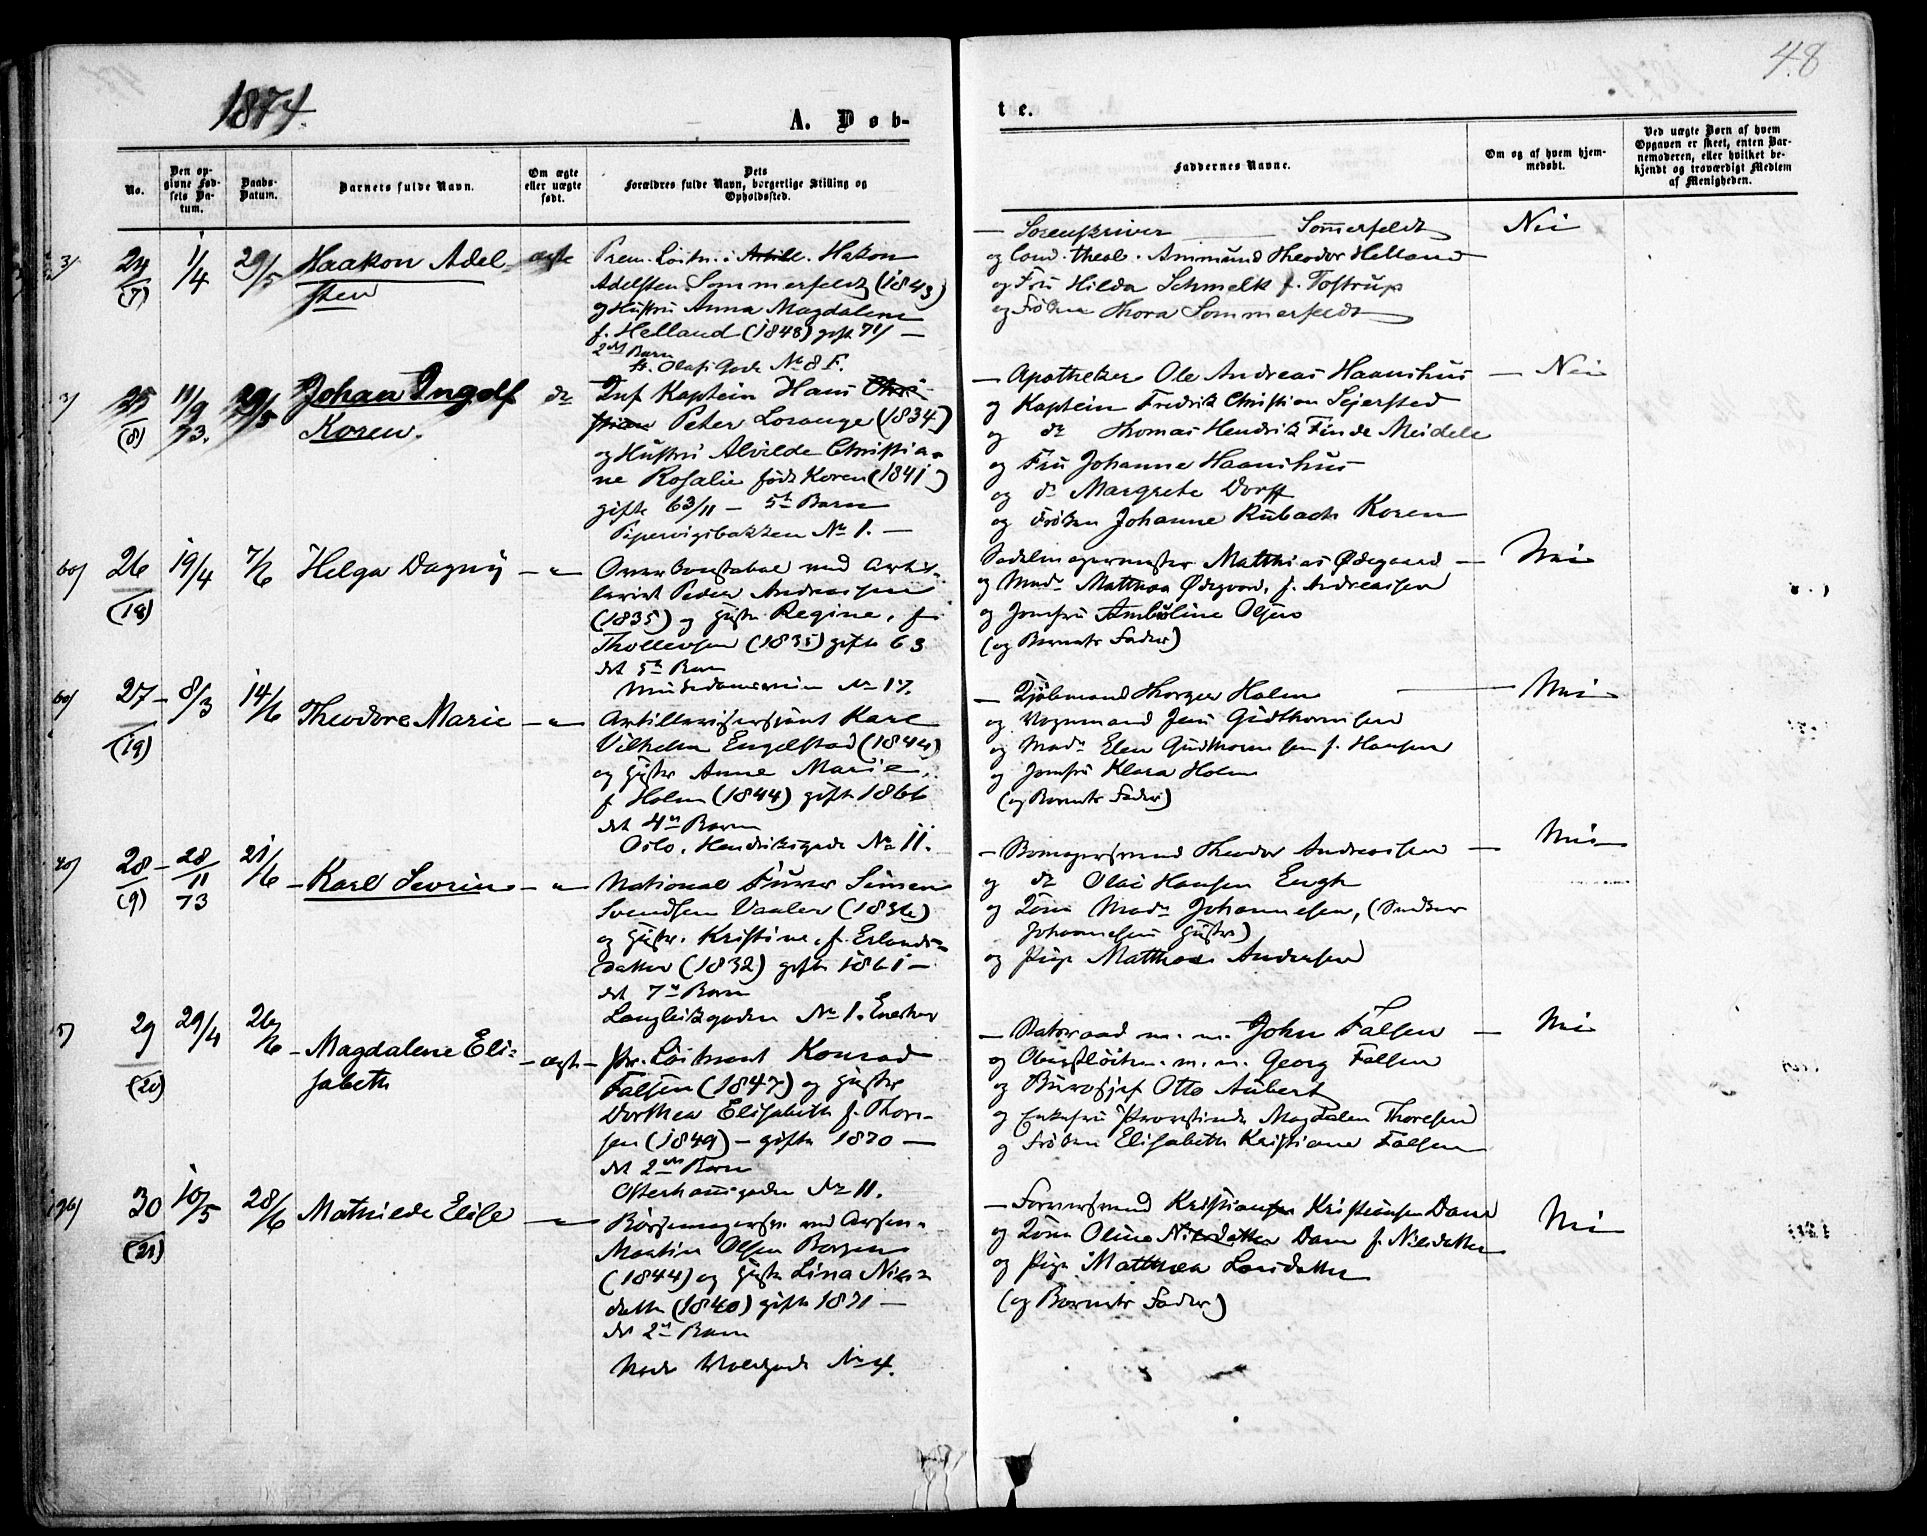 48
1874.
A. Døb-
te.
No.
Den op-
givne Fød-
sels Da-
tum.
Daabs-
Datum.
Barnets fulde Navn.
Om ægte
eller uægte
født.
Dets
Forældres fulde Navn, borgerlige Stilling og
Opholdssted.
Faddernes Navne.
Om og af hvem hjem-
medøbt.
Ved uægte Børn af hvem
Opgaven er skeet, enten Bar-
nemoderen, eller hvilket be-
kjendt og troværdigt Medlem
af Menigheden.
3/ 24 1/4 29/5 Haakon Adel ægte
(7) sten
Prem. Löitn. i Artill. Hakon
Adelsten Sommerfeldt (1843)
og Hustru Anna Magdalene
f. Helland (1848) gift 71 —
2det Barn
St. Olafs Gade No 8 F.
— Sorenskriver — Sommerfeldt
og Cand. theol. Ammund Theodor Helland
og Frü Hilda Schmelk f. Tostrup
og Fröken Thora Sommerfeldt
Nei
3/ 25 11/9 29/5 Johan Ingolf do
(8) 73. Koren.
Inf Kaptein Hans Chri-
stian Peter Lorange (1834)
og Hustru Alvilde Christia-
ne Rosalie född Koren (1841)
gifte 63/11 — 5te Barn
Pipervigsbakken No 1. —
— Apotheker Ole Andreas Haanshus
og Kaptein Fredrik Christian Sejersted
og do Thomas Hendrik Finde Meidell
og Frü Johanne Haanshus
og do Margrete Dorff
og Fröken Johanne Rubach Koren
— Nei
60/ 26 19/4 7/6 Helga Dagny — " —
(18)
Overkonstabel ved Artil-
leriet Peder Andreassen
(1835) og Hustr Regine, f.
Thollevsen (1835) gift 63
det 5te Barn
No 17.
Sadelmagermester Matthias Ødegaard —
og Mad. Matthea Ødegaard, f. Andreassen
og Jomfru Ambuline Olsen
(og Barnets Fader)
Nei
60/ 27 — 8/3 14/6 Theodore Marie — " —
(19)
Artillerisersjant Karl
Vilhelm Engelstad (1844)
og Hustr Anne Marie,
f Holm (1844) gift 1866
det 4de Barn
Oslo. Hendriksgade No 11.
— Kjöbmand Thorger Holm
og Vognmand Jens Gudthormsen
og Mad. Elen Gudthormsen f. Hansen
og Jomfru Klara Holm
(og Barnets Fader)
Nei
40/ 28 — 28/11 21/6 — Karl Sevrin — " —
(9) 73
National Furer Simen
Svendsen Vaaler (1836)
og Hustr. Kristine, f. Erlands-
datter (1832) gift 1861 —
det 7de Barn
Langleiksgaden No 1. Enerhau
— Bomagersvend Theodor Andreassen —
og do Olai Hansen Engh
og Kone Mad. Johannesen, (Snedker
Johannesens Hustru)
og Pige Matthea Andersen
Nei
5/ 29 29/4 26/6 — Magdalene Eli- — ægte —
(20) sabeth
Pr. Löitnant Konrad
Falsen (1847) og Hustr
Dorthea Elisabeth f. Thore-
sen (1849) — gifte 1870 —
det 2det Barn
Osterhausgaden No 11.
— Statsraad m. m. John Falsen —
og Oberstlöitn. m. m. Georg Falsen
og Buröchef Otto Aubert
og Enkefru Provstinde Magdalen Thoresen
og Fröken Elisabeth Kristiane Falsen
Nei
196/ 30 10/5 28/6 Mathilde Elise — " —
(21)
Børsemagersv. ved Arsen.
Martin Olsen Borgen
(1844) og Hustr Lina Nils-
datter (1840) gift 1871 —
det 2det Barn
Nedre Woldgade No 4.
— Kristiansen Kristiansen Dam
og Kone Oline Nilsdatter Dam f. Nilsdatter
og Pige Matthea Larsdatter
(og Barnets Fader)
Nei